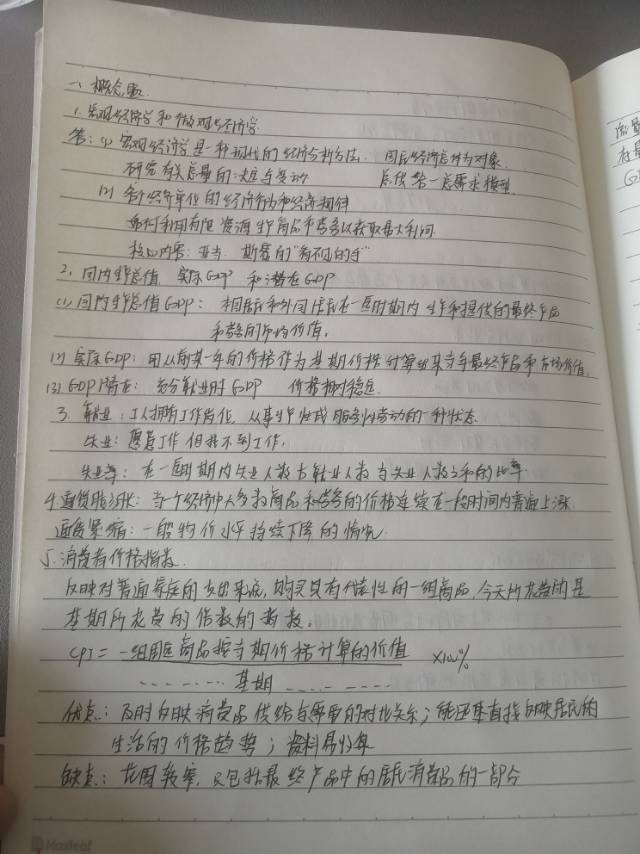 一、概念题
1. 宏观经济学和微观经济学
答：(1) 宏观经济学是一种现代的经济分析方法. 国民经济总体为对象.
研究有关总量的决定与变动 总供给—总需求模型.
(2) 各个经济单位的经济行为和经济规律
如何利用有限资源生产商品和劳务以获取最大利润
核心内容：亚当.斯密的"看不见的手"
2. 国内生产总值 实际GDP 和潜在GDP
(1) 国内生产总值GDP：本国居民和外国居民在一定时期内生产和提供的最终产品
和劳务的市场价值.
(2) 实际GDP：用从前某一年的价格作为基期价格计算出来当年最终产品和市场价值.
(3) GDP潜在：充分就业时GDP 价格相对稳定.
3. 就业：工人拥有工作岗位，从事生产性或服务性劳动的一种状态
失业：愿意工作但找不到工作.
失业率：在一定时期内失业人数占就业人数与失业人数之和的比率
4. 通货膨胀：当一个经济中大多数商品和劳务的价格连续在一段时间内普遍上涨.
通货紧缩：一般物价水平持续下降的情况
5. 消费者价格指数
反映对普通家庭的支出来说，购买具有代表性的一组商品，今天所花费的是
基期所花费的倍数的指数。
CPI = 一组固定商品按当期价格计算的价值 ×100%
基期
优点：及时反映消费品供给与需求的对比关系；能直接反映居民的
生活的价格趋势；资料易收集
缺点：范围较窄，只包括最终产品中的居民消费品的一部分
Maxleaf